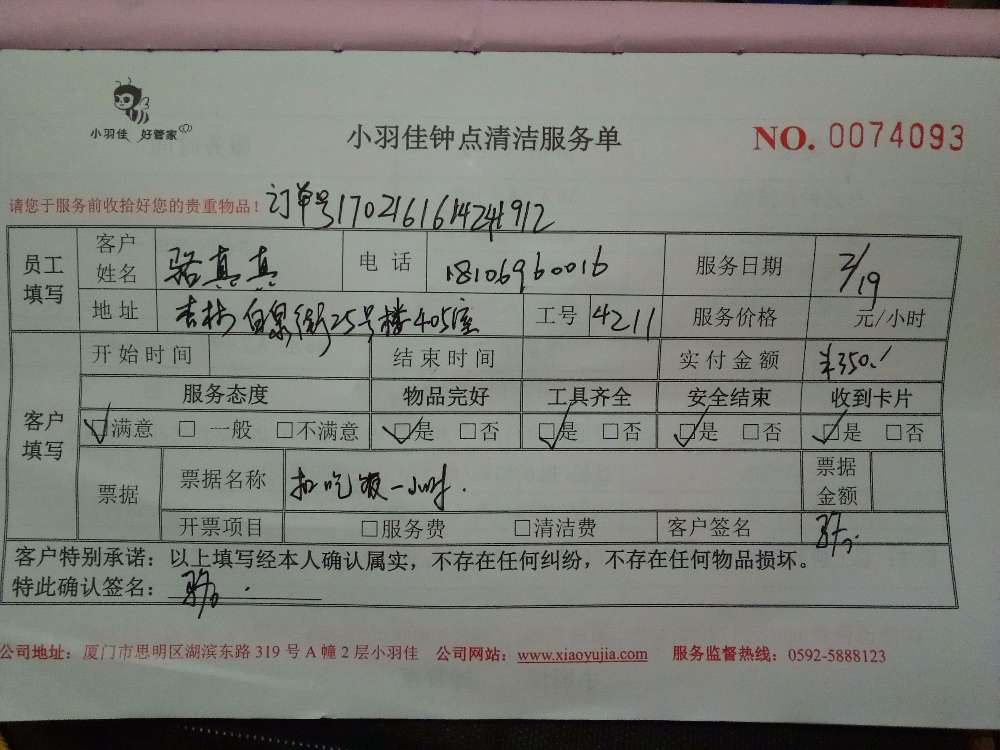 小羽佳 好管家
小羽佳钟点清洁服务单
NO. 0074093
请您于服务前收拾好您的贵重物品! 订单号1702161614241912
员工填写 客户姓名 骆真真 电话 18106960016 服务日期 2/19
地址 杏林白泉街25号楼405室 工号 4211 服务价格 元/小时
客户填写 开始时间 结束时间 实付金额 ¥350.
服务态度 物品完好 工具齐全 安全结束 收到卡片
☑满意 □一般 □不满意 ☑是 □否 ☑是 □否 ☑是 □否 ☑是 □否
票据 票据名称 扣吃饭一小时. 票据金额
开票项目 □服务费 □清洁费 客户签名
客户特别承诺:以上填写经本人确认属实,不存在任何纠纷,不存在任何物品损坏。
特此确认签名:
公司地址:厦门市思明区湖滨东路 319 号 A 幢 2 层小羽佳 公司网站:www.xiaoyujia.com 服务监督热线:0592-5888123